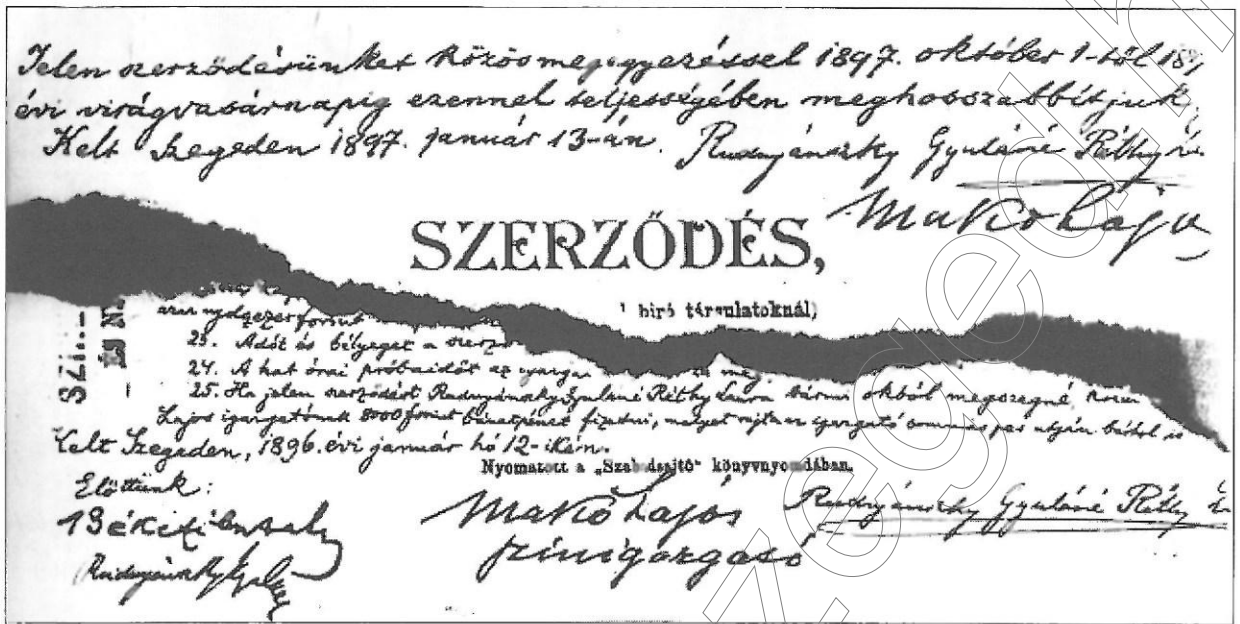 Jelen szerződésünket közös megegyezéssel 1897. október 1-től 189
évi virágvasárnapig ezennel teljességében meghosszabbítjuk,
Kelt Szegeden 1897. január 13-án. Rudnyánszky Gyuláné Réthy
Makó Lajos
SZERZŐDÉS,
biró társulatoknál)
23. Adót és bélyeget a szerző
24. A hat órai próbaidőt az igazga meg.
25. Ha jelen szerződést Rudnyánszky Gyuláné Réthy Laura bármi okból megszegné,
Lajos igazgatónak 8000 forint bánatpénzt fizetni, melyet rajta az igazgató
Kelt Szegeden, 1896. évi január hó 12-ikén.
Nyomatott a „Szabadsajtó" könyvnyomdában.
Előttünk:
Békefi Antal
Makó Lajos
színigazgató
Rudnyánszky Gyuláné Réthy
Rudnyánszky Gyula
szegedma